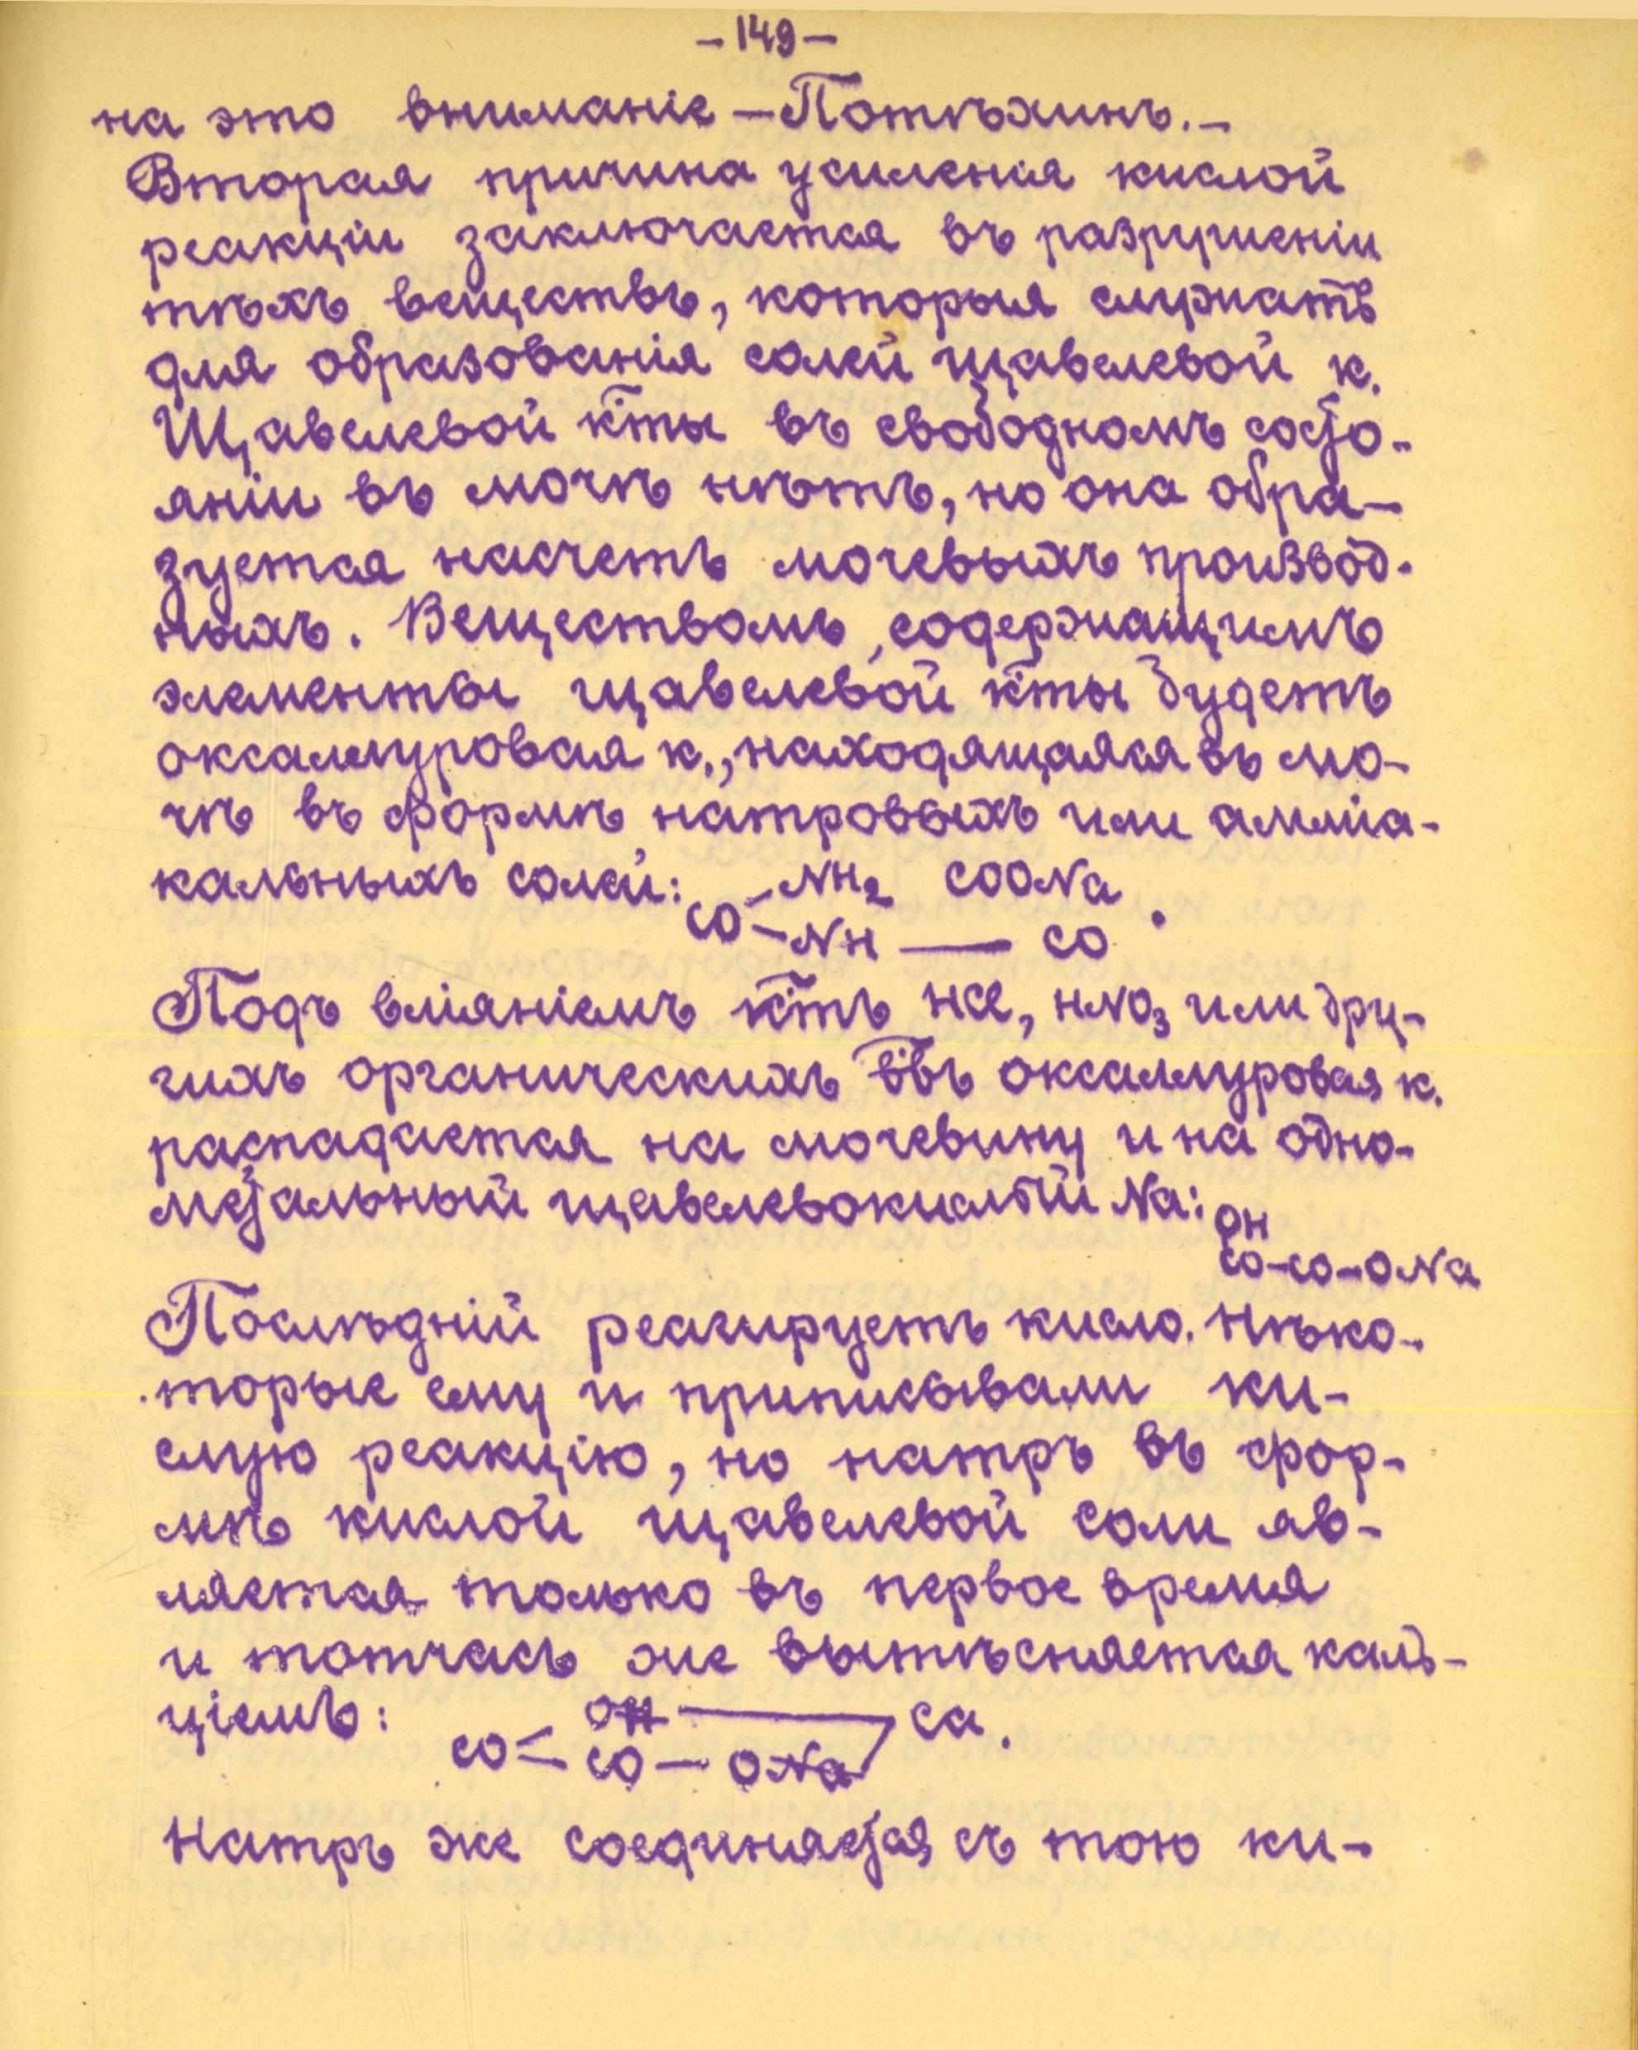 – 149 –
на это вниманіе – Потѣхинъ. –
Вторая причина усиленія кислой
реакціи заключается въ разрушеніи
тѣхъ веществъ, которыя служатъ
для образованія солей щавелевой к.
Щавелевой к̅ты въ свободномъ состо-
яніи въ мочѣ нѣтъ, но она обра-
зуется насчетъ мочевыхъ производ-
ныхъ. Веществомъ, содержащимъ
элементы щавелевой к̅ты будетъ
оксалуровая к., находящаяся въ мо-
чѣ въ формѣ натровыхъ или амміа-
кальныхъ солей: NH2 COONa
CO NH — CO .
Подъ вліяніемъ к̅тъ HCl, HNO3 или дру-
гихъ органическихъ в̅въ оксалуровая к.
распадается на мочевину и на одно-
метальный щавелевокислый Na: OH
CO–CO–ONa
Послѣдній реагируетъ кисло. Нѣко-
торые ему и приписывали ки-
слую реакцію, но натръ въ фор-
мѣ кислой щавелевой соли яв-
ляется только въ первое время
и тотчасъ же вытѣсняется каль-
ціемъ: OH — Ca.
CO < CO – ONa
Натръ же соединяется съ тою ки-